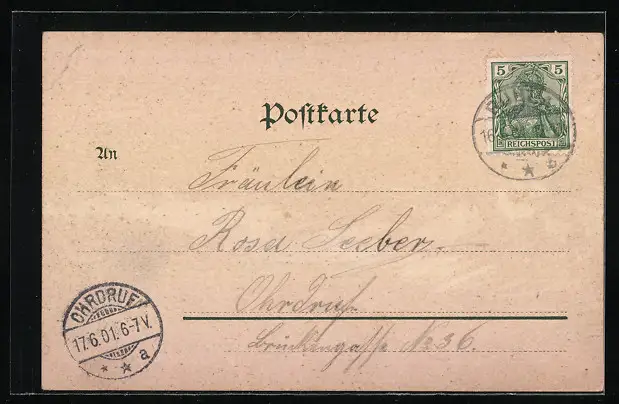 Postkarte
5 5
REICHSPOST
16.
b
An
Fräulein
Rosa Seeber.
Ohrdruf.
Brückengasse No 36.
OHRDRUF
17.6.01.6-7V.
a